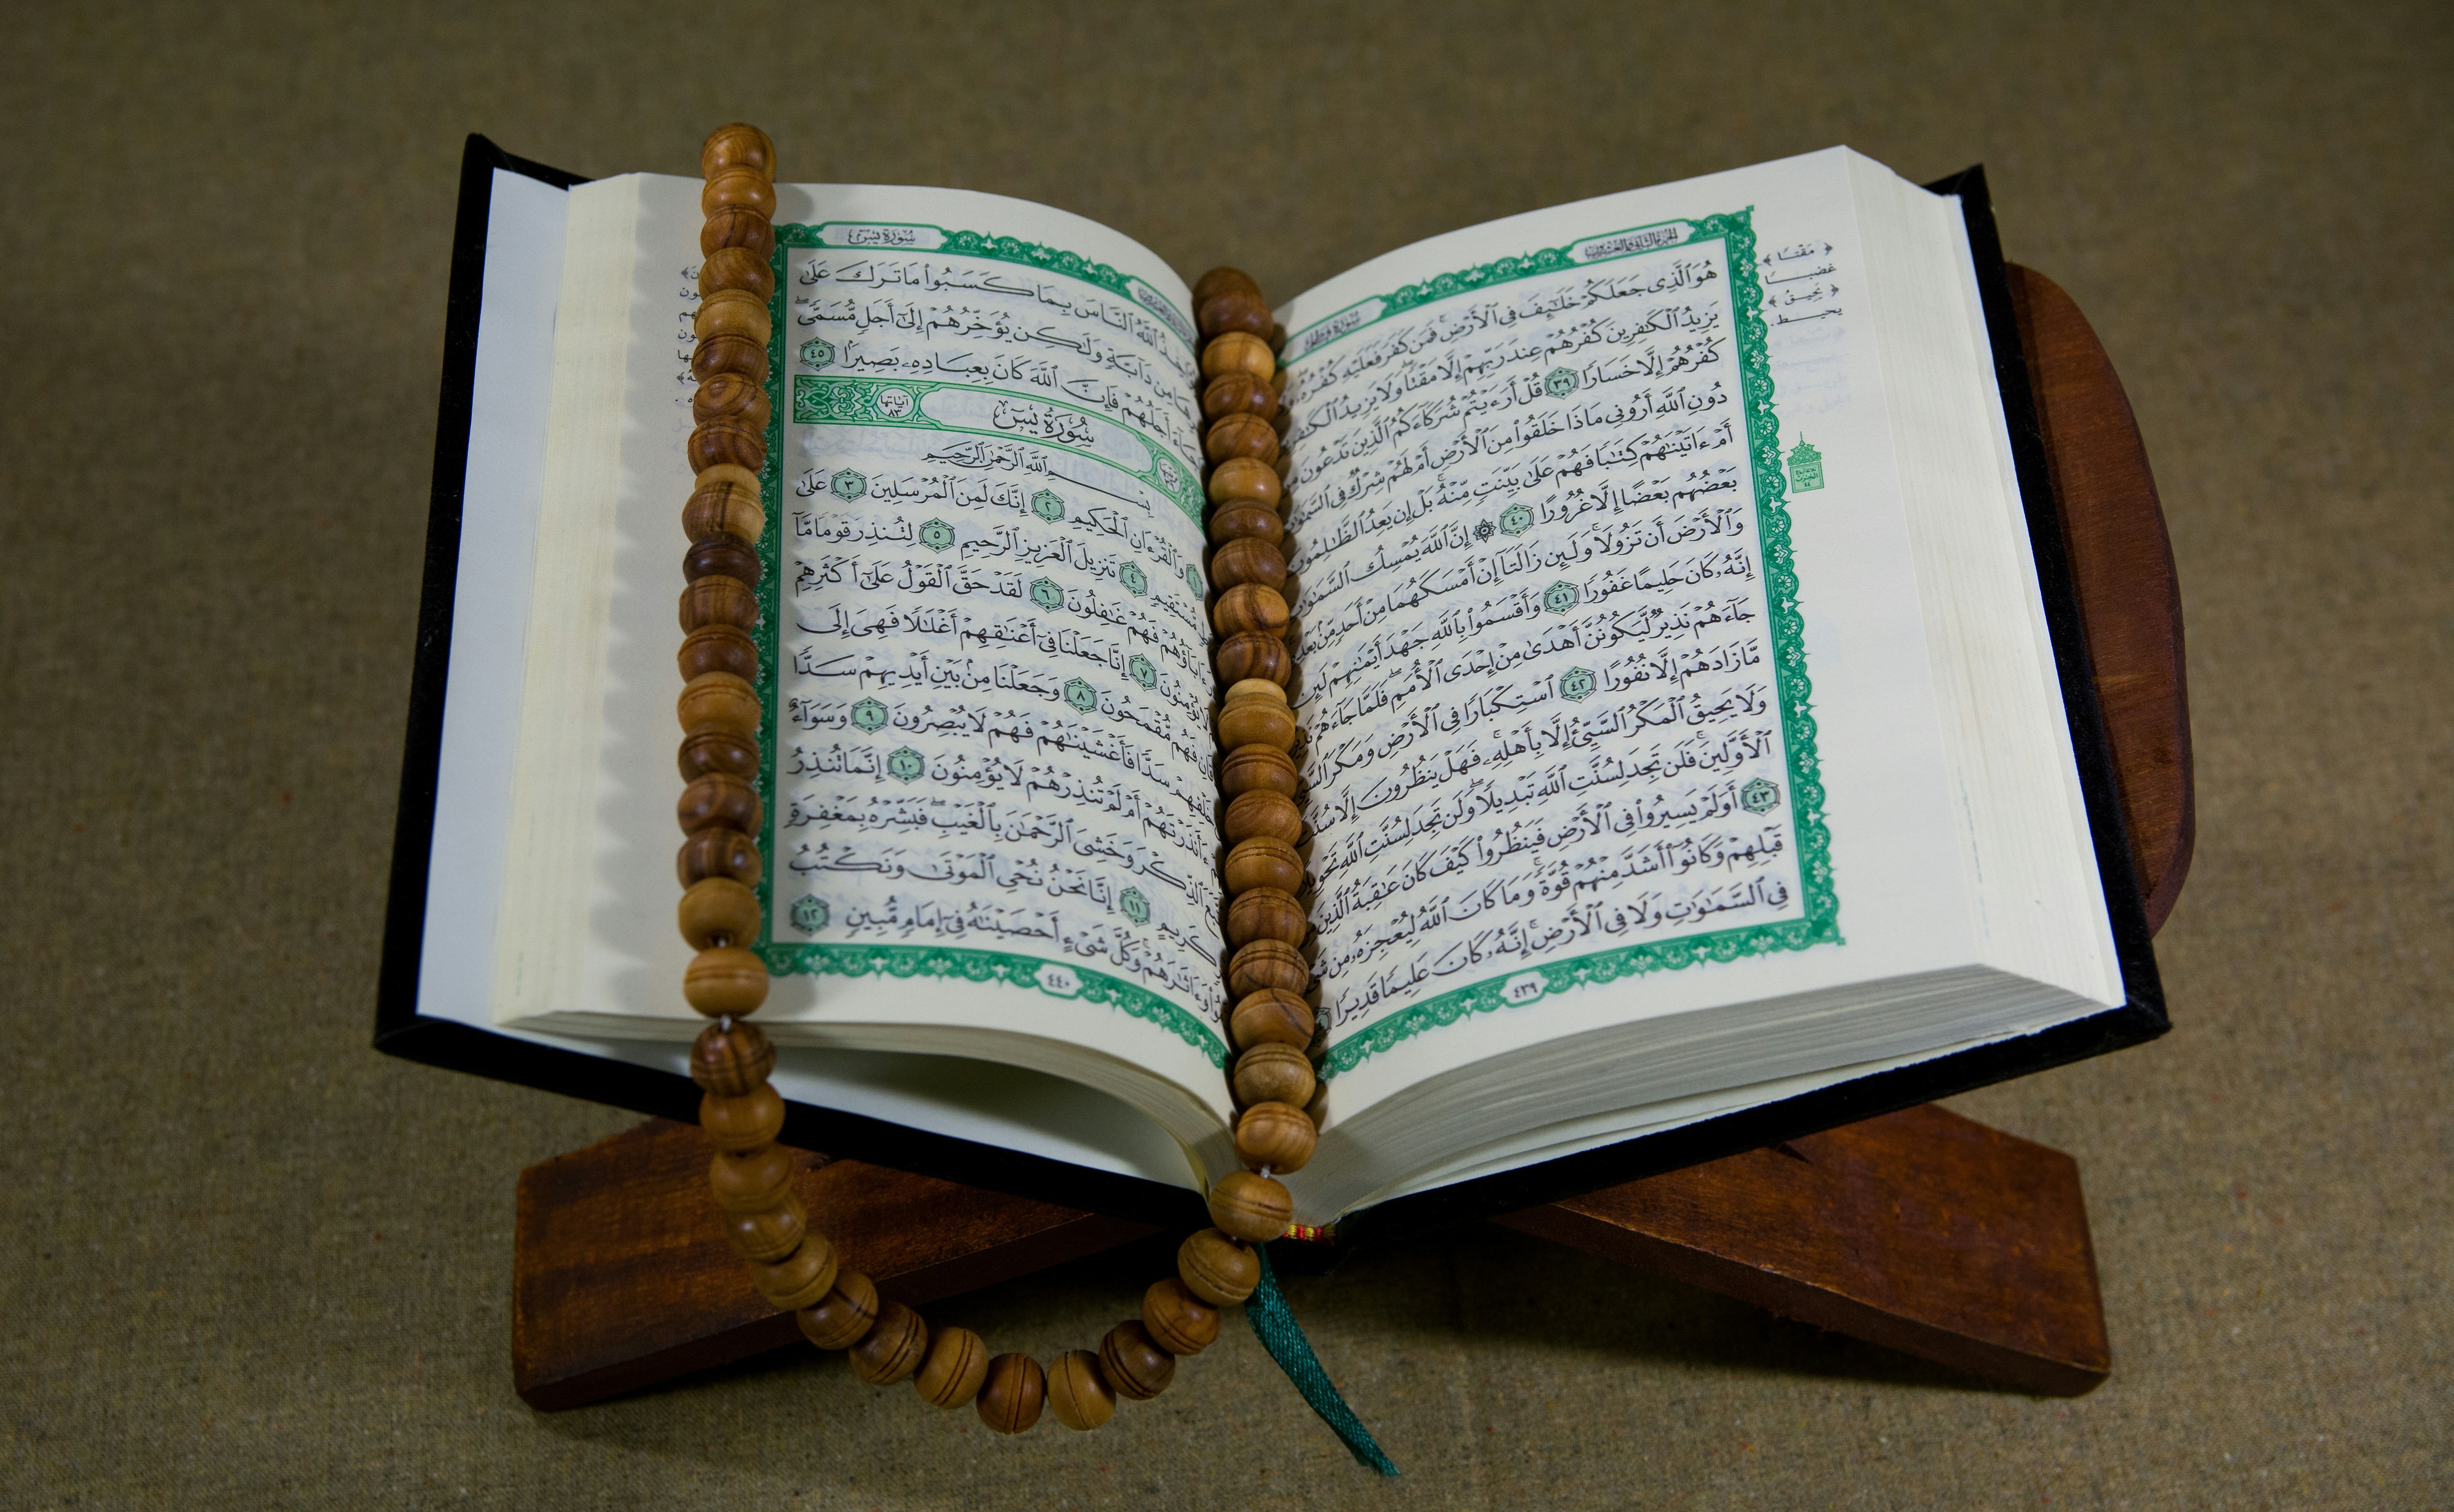 الجزء الثاني والعشرون
سُورَةُ فَاطِرٍ
هُوَ ٱلَّذِى جَعَلَكُمْ خَلَـٰٓئِفَ فِى ٱلْأَرْضِ ۚ فَمَن كَفَرَ فَعَلَيْهِ كُفْرُهُۥ
يَزِيدُ ٱلْكَـٰفِرِينَ كُفْرُهُمْ عِندَ رَبِّهِمْ إِلَّا مَقْتًا ۖ وَلَا يَزِيدُ ٱلْكَـٰفِرِينَ
كُفْرُهُمْ إِلَّا خَسَارًا ٣٩ قُلْ أَرَءَيْتُمْ شُرَكَآءَكُمُ ٱلَّذِينَ تَدْعُونَ مِن
دُونِ ٱللَّهِ أَرُونِى مَاذَا خَلَقُوا۟ مِنَ ٱلْأَرْضِ أَمْ لَهُمْ شِرْكٌ فِى ٱلسَّمَـٰوَٰتِ
أَمْ ءَاتَيْنَـٰهُمْ كِتَـٰبًا فَهُمْ عَلَىٰ بَيِّنَتٍ مِّنْهُ ۚ بَلْ إِن يَعِدُ ٱلظَّـٰلِمُونَ
بَعْضُهُم بَعْضًا إِلَّا غُرُورًا ٤٠ ۞ إِنَّ ٱللَّهَ يُمْسِكُ ٱلسَّمَـٰوَٰتِ
وَٱلْأَرْضَ أَن تَزُولَا ۚ وَلَئِن زَالَتَآ إِنْ أَمْسَكَهُمَا مِنْ أَحَدٍ مِّنۢ بَعْدِهِ
إِنَّهُۥ كَانَ حَلِيمًا غَفُورًا ٤١ وَأَقْسَمُوا۟ بِٱللَّهِ جَهْدَ أَيْمَـٰنِهِمْ لَئِن
جَآءَهُمْ نَذِيرٌ لَّيَكُونُنَّ أَهْدَىٰ مِنْ إِحْدَى ٱلْأُمَمِ ۖ فَلَمَّا جَآءَهُمْ
مَّا زَادَهُمْ إِلَّا نُفُورًا ٤٢ ٱسْتِكْبَارًا فِى ٱلْأَرْضِ وَمَكْرَ
وَلَا يَحِيقُ ٱلْمَكْرُ ٱلسَّيِّئُ إِلَّا بِأَهْلِهِۦ ۚ فَهَلْ يَنظُرُونَ إِلَّا
ٱلْأَوَّلِينَ ۚ فَلَن تَجِدَ لِسُنَّتِ ٱللَّهِ تَبْدِيلًا ۖ وَلَن تَجِدَ لِسُنَّتِ ٱللَّهِ تَحْوِيلًا
٤٣ أَوَلَمْ يَسِيرُوا۟ فِى ٱلْأَرْضِ فَيَنظُرُوا۟ كَيْفَ كَانَ عَـٰقِبَةُ ٱلَّذِينَ
قَبْلِهِمْ وَكَانُوٓا۟ أَشَدَّ مِنْهُمْ قُوَّةً ۚ وَمَا كَانَ ٱللَّهُ لِيُعْجِزَهُۥ مِن
فِى ٱلسَّمَـٰوَٰتِ وَلَا فِى ٱلْأَرْضِ ۚ إِنَّهُۥ كَانَ عَلِيمًا قَدِيرًا
٤٣٩
﴿ مَقْتًا ﴾
غضبـــا
﴿ يَحِيقُ ﴾
يحيــط.
سُورَةُ يسٓ
ٱللَّهُ ٱلنَّاسَ بِمَا كَسَبُوا۟ مَا تَرَكَ عَلَىٰ
مِن دَآبَّةٍ وَلَـٰكِن يُؤَخِّرُهُمْ إِلَىٰٓ أَجَلٍ مُّسَمًّى ۖ
جَآءَ أَجَلُهُمْ فَإِنَّ ٱللَّهَ كَانَ بِعِبَادِهِۦ بَصِيرًۢا ٤٥
سُورَةُ يسٓ
آياتها ٨٣
بِسْمِ ٱللَّهِ ٱلرَّحْمَـٰنِ ٱلرَّحِيمِ
١ وَٱلْقُرْءَانِ ٱلْحَكِيمِ ٢ إِنَّكَ لَمِنَ ٱلْمُرْسَلِينَ ٣ عَلَىٰ
مُّسْتَقِيمٍ ٤ تَنزِيلَ ٱلْعَزِيزِ ٱلرَّحِيمِ ٥ لِتُنذِرَ قَوْمًا مَّآ
ءَابَآؤُهُمْ فَهُمْ غَـٰفِلُونَ ٦ لَقَدْ حَقَّ ٱلْقَوْلُ عَلَىٰٓ أَكْثَرِهِمْ
لَا يُؤْمِنُونَ ٧ إِنَّا جَعَلْنَا فِىٓ أَعْنَـٰقِهِمْ أَغْلَـٰلًا فَهِىَ إِلَى
فَهُم مُّقْمَحُونَ ٨ وَجَعَلْنَا مِنۢ بَيْنِ أَيْدِيهِمْ سَدًّا
خَلْفِهِمْ سَدًّا فَأَغْشَيْنَـٰهُمْ فَهُمْ لَا يُبْصِرُونَ ٩ وَسَوَآءٌ
ءَأَنذَرْتَهُمْ أَمْ لَمْ تُنذِرْهُمْ لَا يُؤْمِنُونَ ١٠ إِنَّمَا تُنذِرُ
ٱلذِّكْرَ وَخَشِىَ ٱلرَّحْمَـٰنَ بِٱلْغَيْبِ ۖ فَبَشِّرْهُ بِمَغْفِرَةٍ
كَرِيمٍ ١١ إِنَّا نَحْنُ نُحْىِ ٱلْمَوْتَىٰ وَنَكْتُبُ
وَءَاثَـٰرَهُمْ ۚ وَكُلَّ شَىْءٍ أَحْصَيْنَـٰهُ فِىٓ إِمَامٍ مُّبِينٍ ١٢
٤٤٠